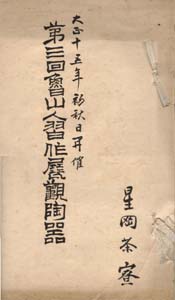 大正十五年初秋日再催
第三回魯山人習作展觀陶器
星岡茶寮